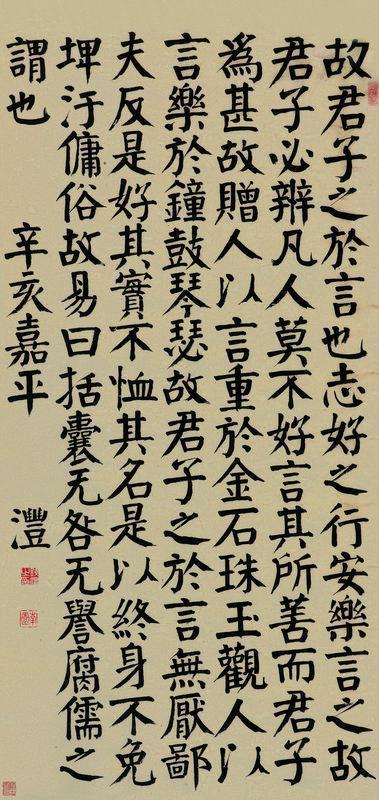 故君子之於言也志好之行安樂言之故
君子必辨凡人莫不好言其所善而君子
爲甚故贈人以言重於金石珠玉觀人以
言樂於鐘鼓琴瑟故君子之於言無厭鄙
夫反是好其實不恤其名是以終身不免
埤汙傭俗故易曰括囊无咎无譽腐儒之
謂也 辛亥嘉平 灃